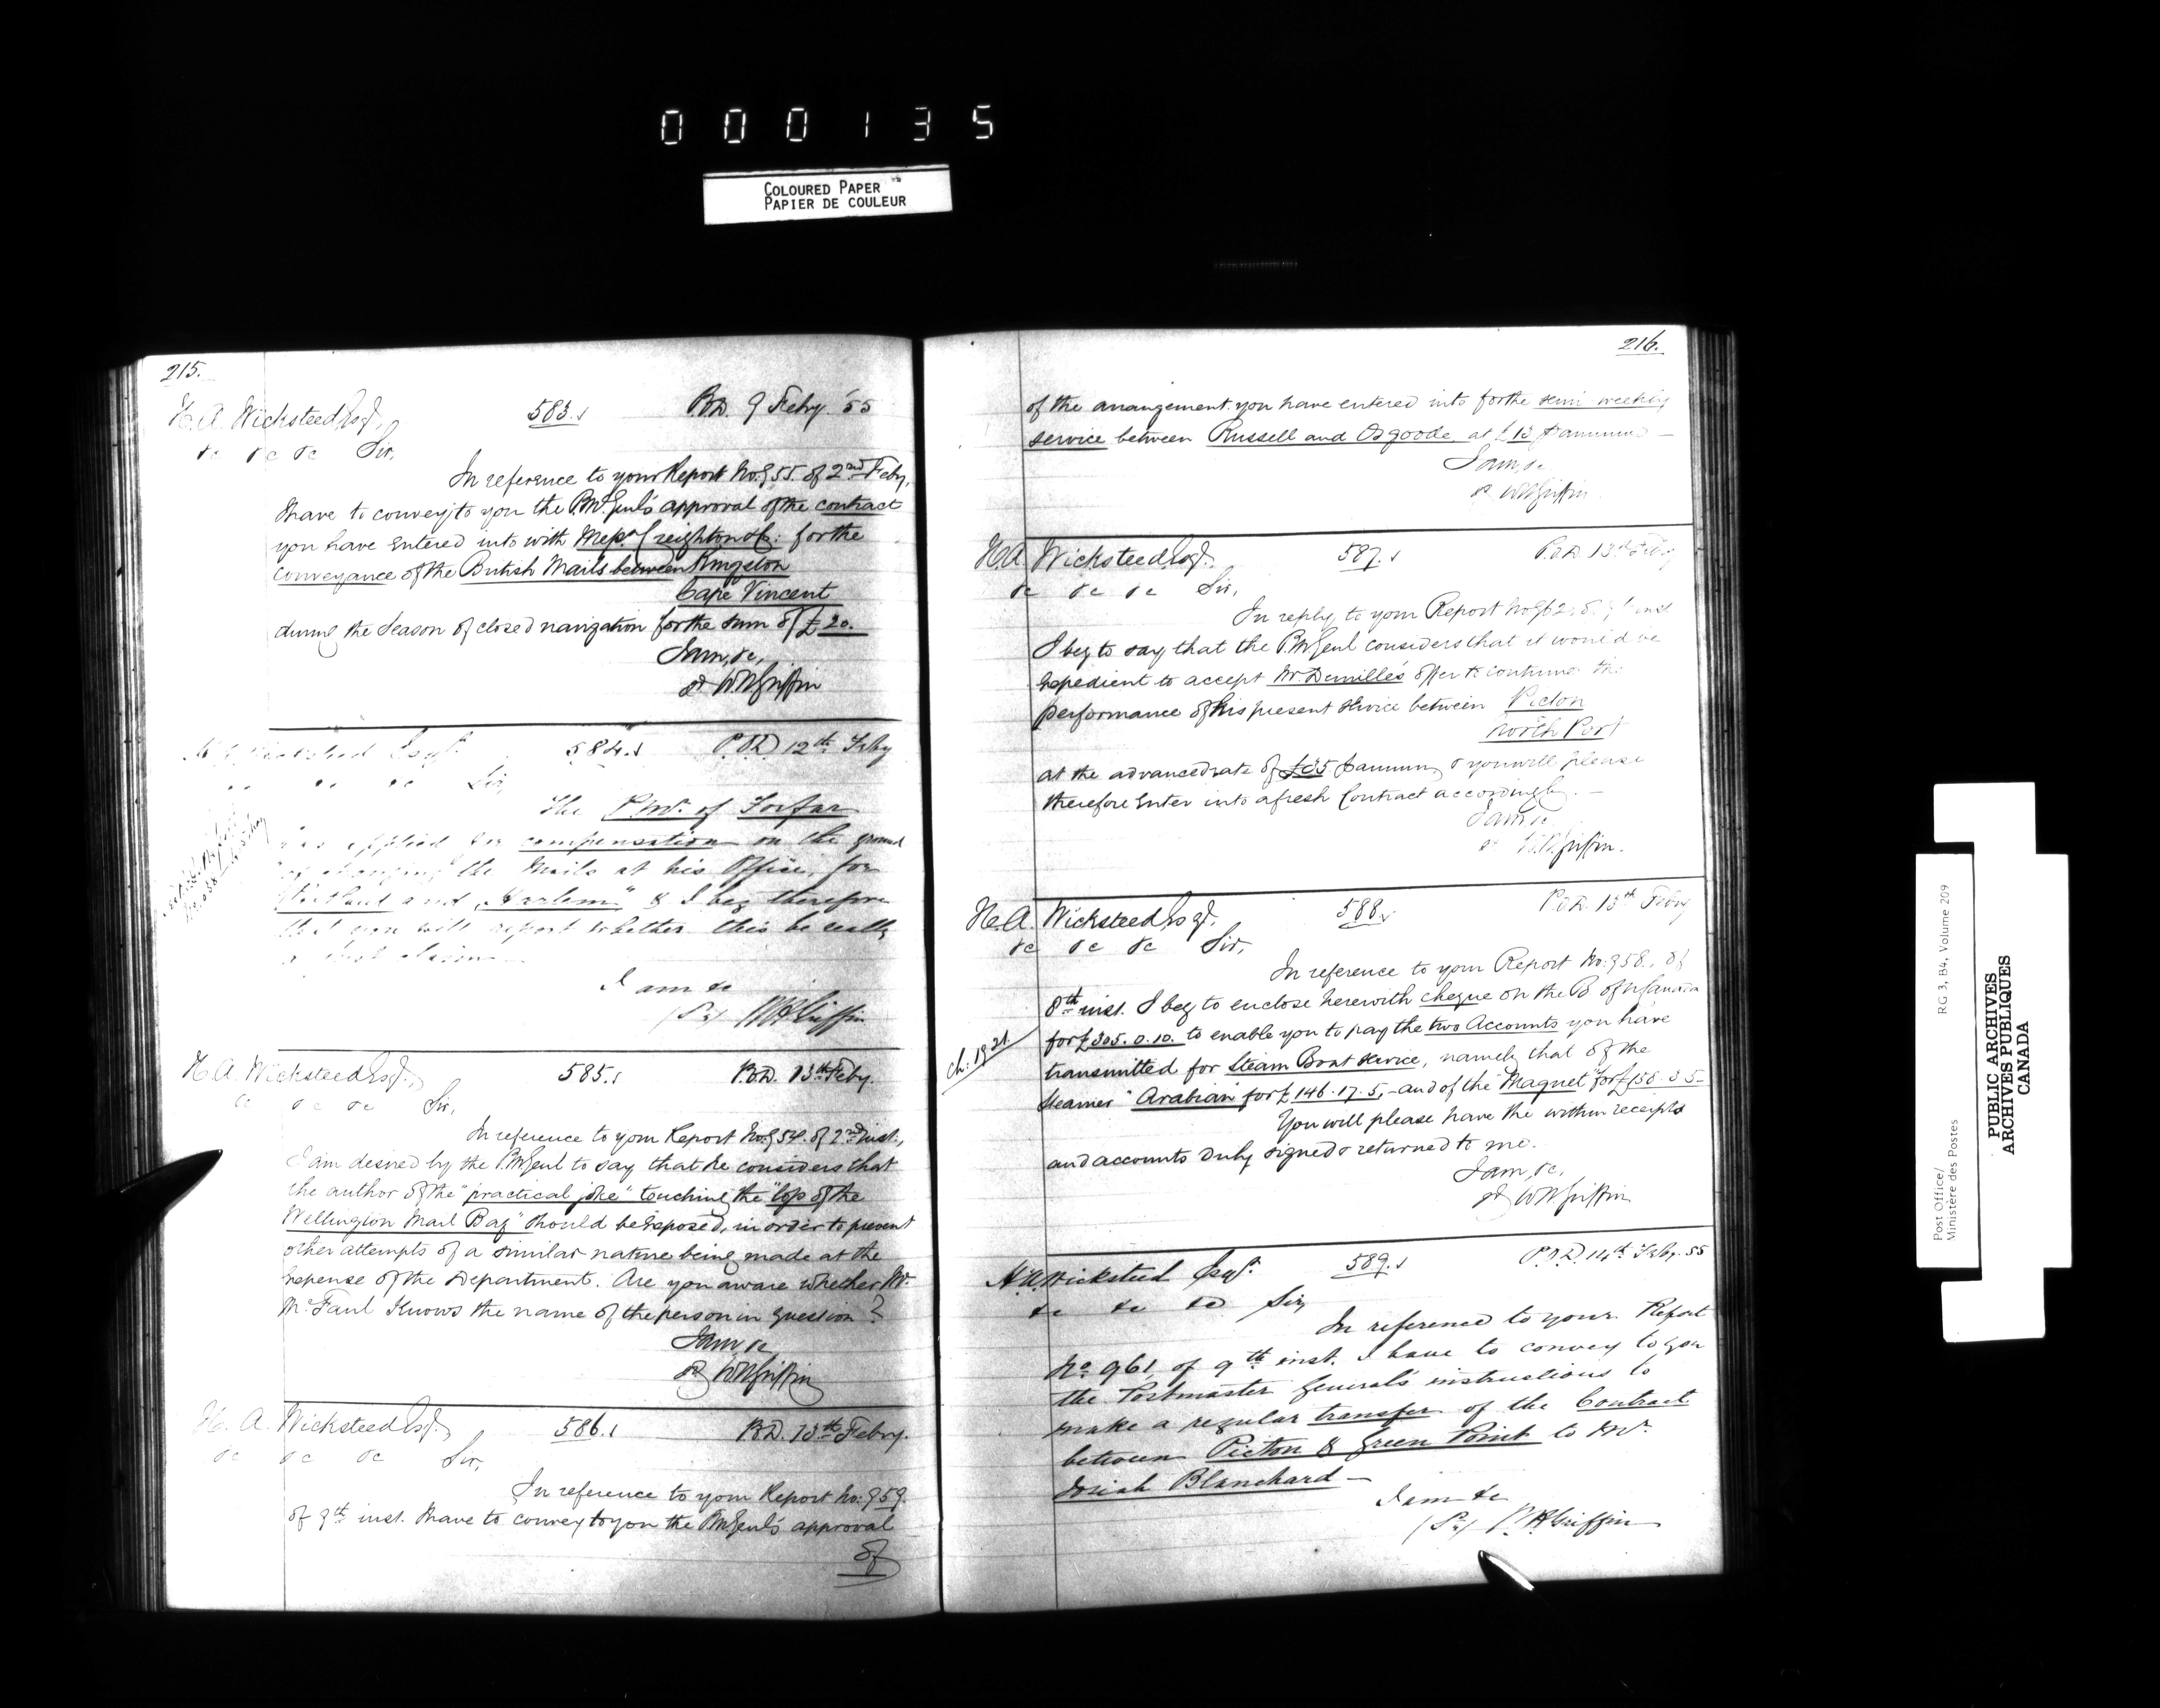 000135
COLOURED PAPER
PAPIER DE COULEUR
215.
H. A. Wicksteed Esqr. 583. P.O.D. 9 Feby. '55
&c &c &c Sir,
In reference to your Report No. 955. of 2nd Feby,
I have to convey to you the P.M. Genl's approval of the contract
you have entered into with Messrs. Creighton & Co: for the
conveyance of the British Mails between Kingston
Cape Vincent
during the Season of closed navigation for the sum of £20.
I am, &c,
sd W H Griffin
Wicksteed Esqr. 584. P.O.D. 12th Feby
&c &c Sir,
The P.Mr. of Forfar
has applied for compensation on the ground
of changing the Mails at his Office, for
and "Harlem" & I beg therefore
that you will report whether this be really
a just claim
I am &c
(Sd) W H Griffin
H. A. Wicksteed Esqr., 585. P.O.D. 13th Feby.
&c &c &c Sir,
In reference to your Report No. 954. of 2nd inst.,
I am desired by the P.M. Genl to say that he considers that
the author of the "practical joke" touching the "loss of the
Wellington Mail Bag" should be exposed, in order to prevent
other attempts of a similar nature being made at the
expense of the Department. Are you aware whether Mr.
McFaul Knows the name of the person in question?
I am, &c,
sd W H Griffin
H. A. Wicksteed Esqr. 586. P.O.D. 13th Feby.
&c &c &c Sir,
In reference to your Report No. 959.
of 9th inst. I have to convey to you the P.M. Genl's approval
of
216.
of the arrangement you have entered into for the semi weekly
service between Russell and Osgoode at £13 p annum —
I am, &c
sd W H Griffin
H. A. Wicksteed Esqr. 587. P.O.D. 13th Feby
&c &c &c Sir,
In reply to your Report No. 962 of inst
I beg to say that the P.M. Genl considers that it would be
expedient to accept Mr. Demille's offer to continue the
performance of his present service between Picton
North Port
at the advanced rate of £35 p annum, & you will please
therefore enter into a fresh Contract accordingly. —
I am &c
sd W H Griffin.
H. A. Wicksteed Esqr. 588. P.O.D. 13th Feby
&c &c &c Sir,
In reference to your Report No. 958., of
8th inst. I beg to enclose herewith cheque on the B of U Canada
for £305. 0. 10. to enable you to pay the two Accounts you have
Ch. 1921
transmitted for Steam Boat service, namely that of the
Steamer "Arabian" for £146. 17. 5, — and of the "Magnet" for £158. 3. 5 —
You will please have the within receipts
and accounts duly signed & returned to me.
I am, &c,
sd W H Griffin
H. A. Wicksteed Esqr. 589. P.O.D. 14th Feby. 55
&c &c &c Sir,
In reference to your Report
No. 961, of 9th inst. I have to convey to you
the Postmaster General's instructions to
make a regular transfer of the Contract
between Picton & Green Point to Mr.
Josiah Blanchard —
I am &c
(Sd) W H Griffin
Post Office/ RG 3, B4, Volume 209
Ministère des Postes
PUBLIC ARCHIVES
ARCHIVES PUBLIQUES
CANADA